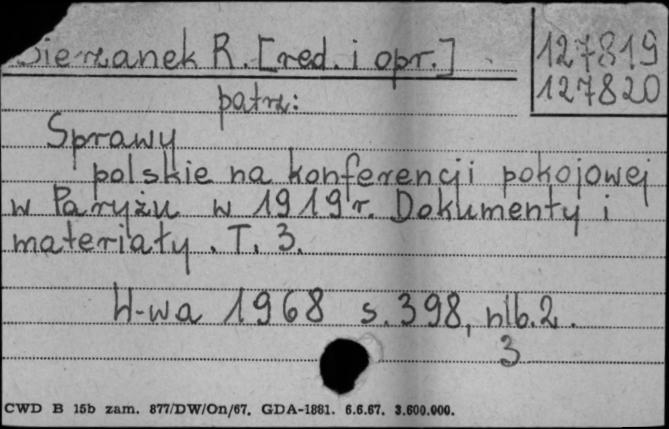 Bierzanek R. [red. i opr.]
127819
127820
patrz:
Sprawy
polskie na konferencji pokojowej
w Paryżu w 1919 r. Dokumenty i
materiały. T. 3.
W-wa 1968 s. 398, nlb. 2.
3
CWD B 15b zam. 877/DW/On/67. GDA-1881. 6.6.67. 3.600.000.